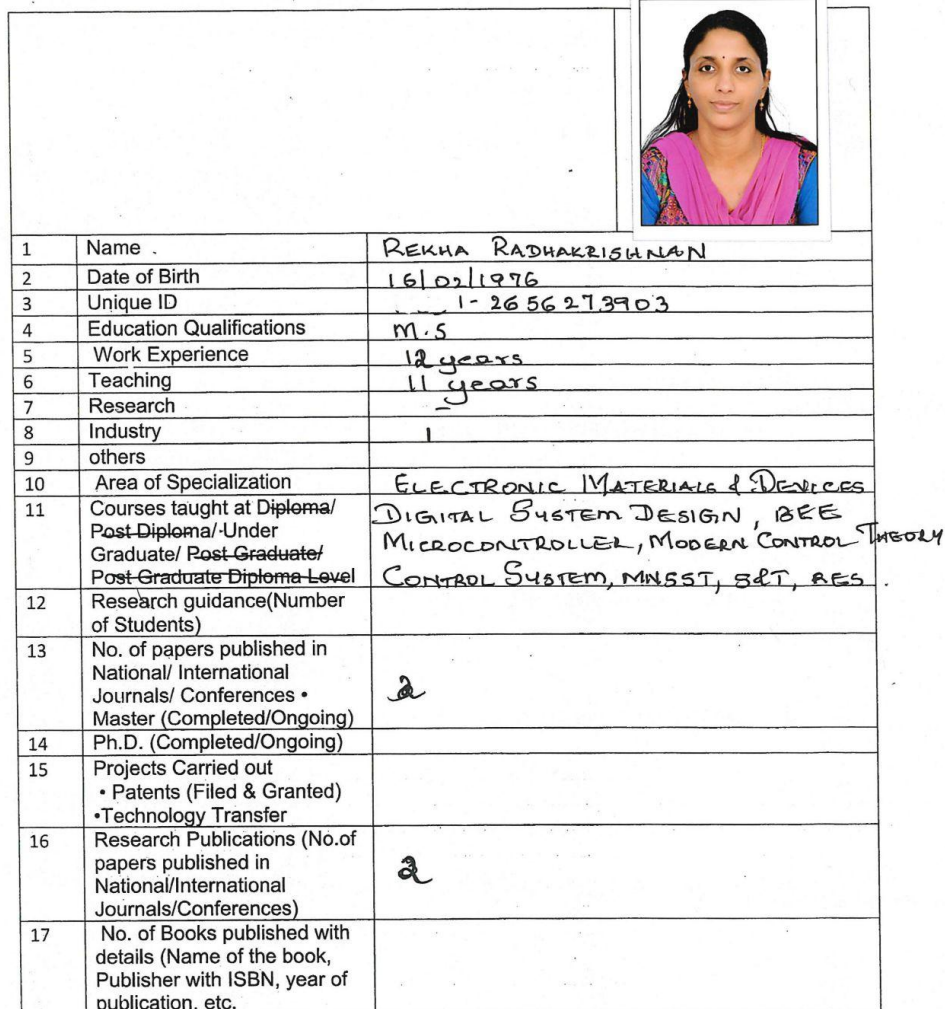 1 Name . REKHA RADHAKRISHNAN
2 Date of Birth 16/02/1976
3 Unique ID 1-2656273903
4 Education Qualifications M.S
5 Work Experience 12 years
6 Teaching 11 years
7 Research -
8 Industry 1
9 others
10 Area of Specialization ELECTRONIC MATERIALS & DEVICES
11 Courses taught at Diploma/ DIGITAL SYSTEM DESIGN, BEE
Post Diploma/ Under MICROCONTROLLER, MODERN CONTROL THEORY
Graduate/ Post Graduate/
Post Graduate Diploma Level CONTROL SYSTEM, MNSST, S&T, RES.
12 Research guidance(Number
of Students)
13 No. of papers published in
National/ International
Journals/ Conferences • 2
Master (Completed/Ongoing)
14 Ph.D. (Completed/Ongoing)
15 Projects Carried out
• Patents (Filed & Granted)
•Technology Transfer
16 Research Publications (No.of
papers published in 2
National/International
Journals/Conferences)
17 No. of Books published with
details (Name of the book,
Publisher with ISBN, year of
publication, etc.